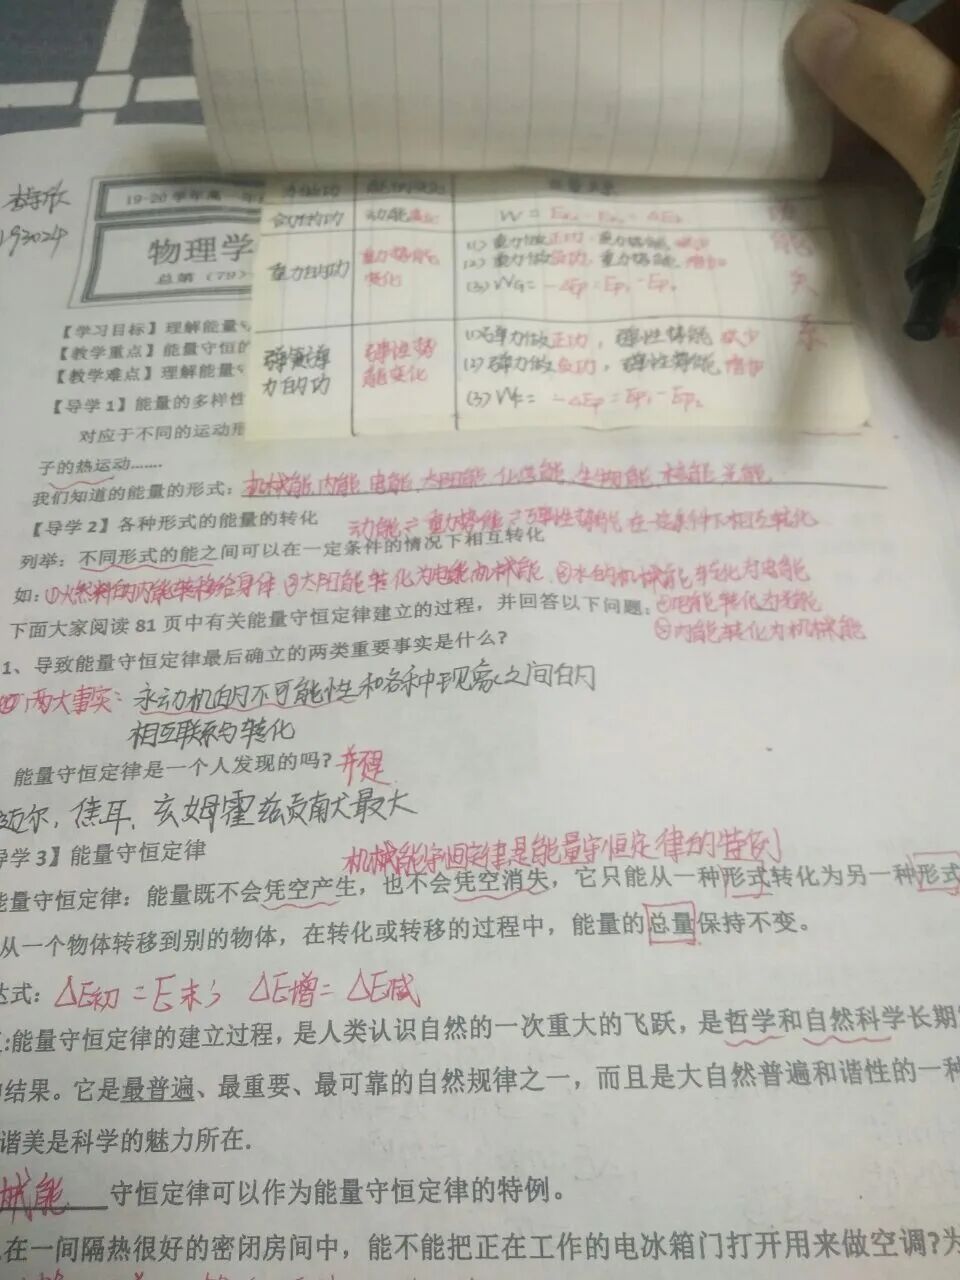 193024
19-20学年高
物理学
总第（79）
合力的功 动能变化 W =
重力的功 重力势能变化
(1) 重力做正功，重力势能减少
(2) 重力做负功，重力势能增加
(3) WG= -ΔEp = Ep₁-Ep₂
弹簧弹力的功 弹性势能变化
(1) 弹力做正功，弹性势能减少
(2) 弹力做负功，弹性势能增加
(3) WF= -ΔEp = Ep₁-Ep₂
能关系
【学习目标】理解能量
【教学重点】能量守恒的
【教学难点】理解能量
【导学1】能量的多样性
对应于不同的运动形
子的热运动……
我们知道的能量的形式：机械能、内能、电能、太阳能、化学能、生物能、核能、光能
【导学2】各种形式的能量的转化 动能⇌重力势能⇌弹性势能在一定条件下相互转化
列举：不同形式的能之间可以在一定条件的情况下相互转化
如：①燃料的内能转移给身体 ②太阳能转化为电能机械能 ③水的机械能转化为电能
下面大家阅读81页中有关能量守恒定律建立的过程，并回答以下问题： ④电能转化为光能
⑤内能转化为机械能
1、导致能量守恒定律最后确立的两类重要事实是什么？
两大事实：永动机的不可能性和各种现象之间的
相互联系与转化
能量守恒定律是一个人发现的吗？并提
迈尔、焦耳、亥姆霍兹贡献最大
导学3】能量守恒定律 机械能守恒定律是能量守恒定律的特例
能量守恒定律：能量既不会凭空产生，也不会凭空消失，它只能从一种形式转化为另一种形式
从一个物体转移到别的物体，在转化或转移的过程中，能量的总量保持不变。
达式：ΔE初=E末； ΔE增=ΔE减
:能量守恒定律的建立过程，是人类认识自然的一次重大的飞跃，是哲学和自然科学长期
结果。它是最普遍、最重要、最可靠的自然规律之一，而且是大自然普遍和谐性的一种
谐美是科学的魅力所在.
械能 守恒定律可以作为能量守恒定律的特例。
在一间隔热很好的密闭房间中，能不能把正在工作的电冰箱门打开用来做空调?为